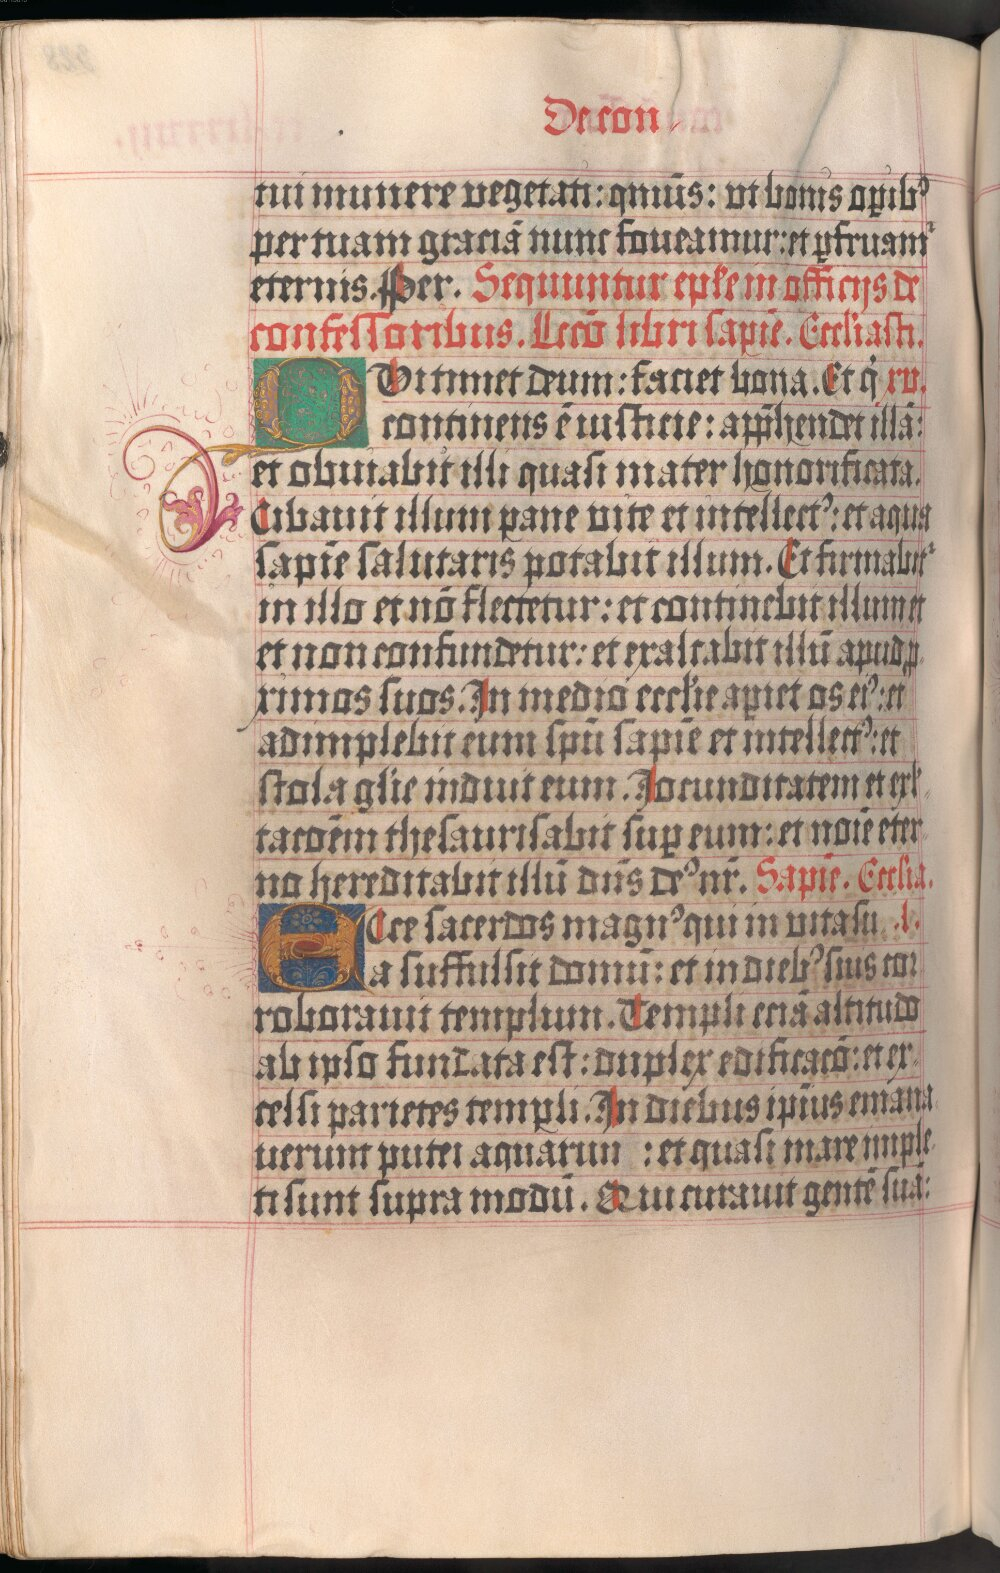 De con
tui munere vegetati: qm̄s: vt bonis op̄ib⁹
per tuam graciā nunc foveamur: et p̄fruam᷑
eternis. Per. Sequuntur ep̄le in officijs de
confessoribus. Lecō libri sapiē. Eccl̄iasti.
QVi timet deum: faciet bona. Et q̇ xv.
continens ē iusticie: app̄hendet illā:
et obviabit illi quasi mater honorificata.
Cibavit illum pane vite et intellect⁹: et aqua
sapiē salutaris potabit illum. Et firmabit᷑
in illo et nō flectetur: et continebit illum et
et non confundetur: et exaltabit illū apud p̱
ximos suos. In medio eccl̄ie ap̄iet os ei⁹: et
adimplebit eum sp̄ū sapiē et intellect⁹: et
stola gl̄ie induit eum. Jocunditatem et exl̄
tacōēm thesaurisabit sup̱ eum: et noīe eter
no hereditabit illū dn̄s de⁹ nr̄. Sapiē. Eccl̄ia.
ECce sacerdos magn⁹ qui in vita su .l.
a suffulsit domū: et in dieb⁹ suis cor
roboravit templum. Templi eciā altitudo
ab ipso fundata est: duplex edificacō: et ex
celsi parietes templi. In diebus ip̄ius emana
uerunt putei aquarun : et quasi mare imple
ti sunt supra modū. Qui curavit gentē suā: